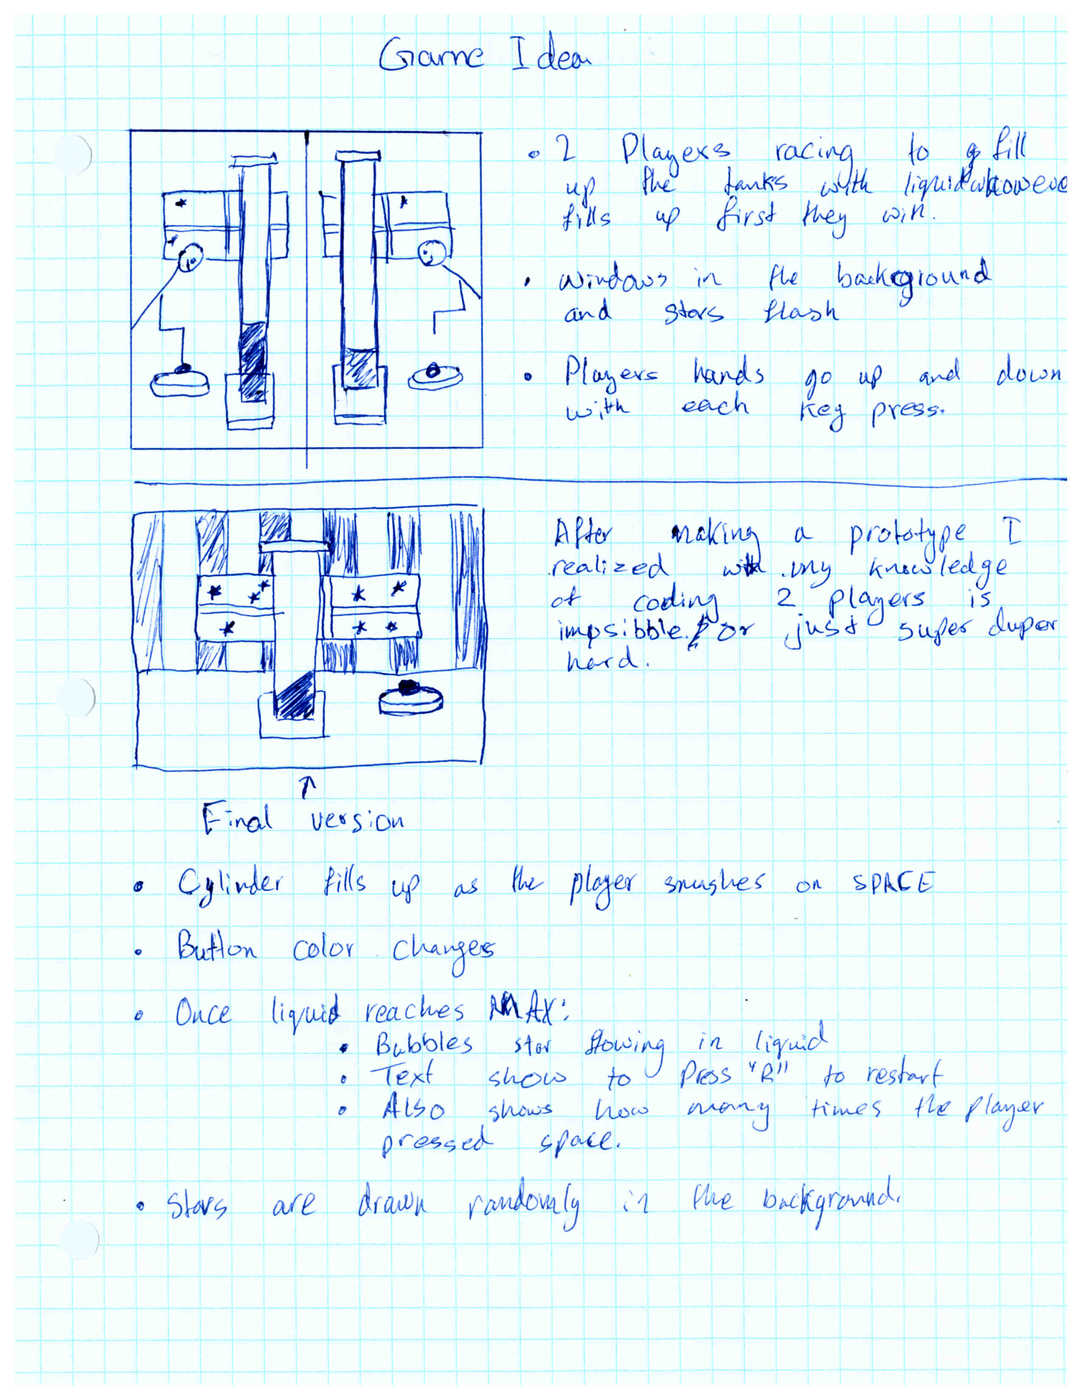 Game Idea
• 2 Players racing to fill
up the tanks with liquid whoever
fills up first they win.
• windows in the background
and stars flash
• Players hands go up and down
with each key press.
After making a prototype I
realized with my knowledge
of coding 2 players is
impsibble. or just super duper
hard.
Final version
• Cylinder fills up as the player smushes on SPACE
• Button color changes
• Once liquid reaches MAX:
• Bubbles star flowing in liquid
• Text show to press "R" to restart
• Also shows how many times the player
pressed space.
• Stars are drawn randomly in the background.